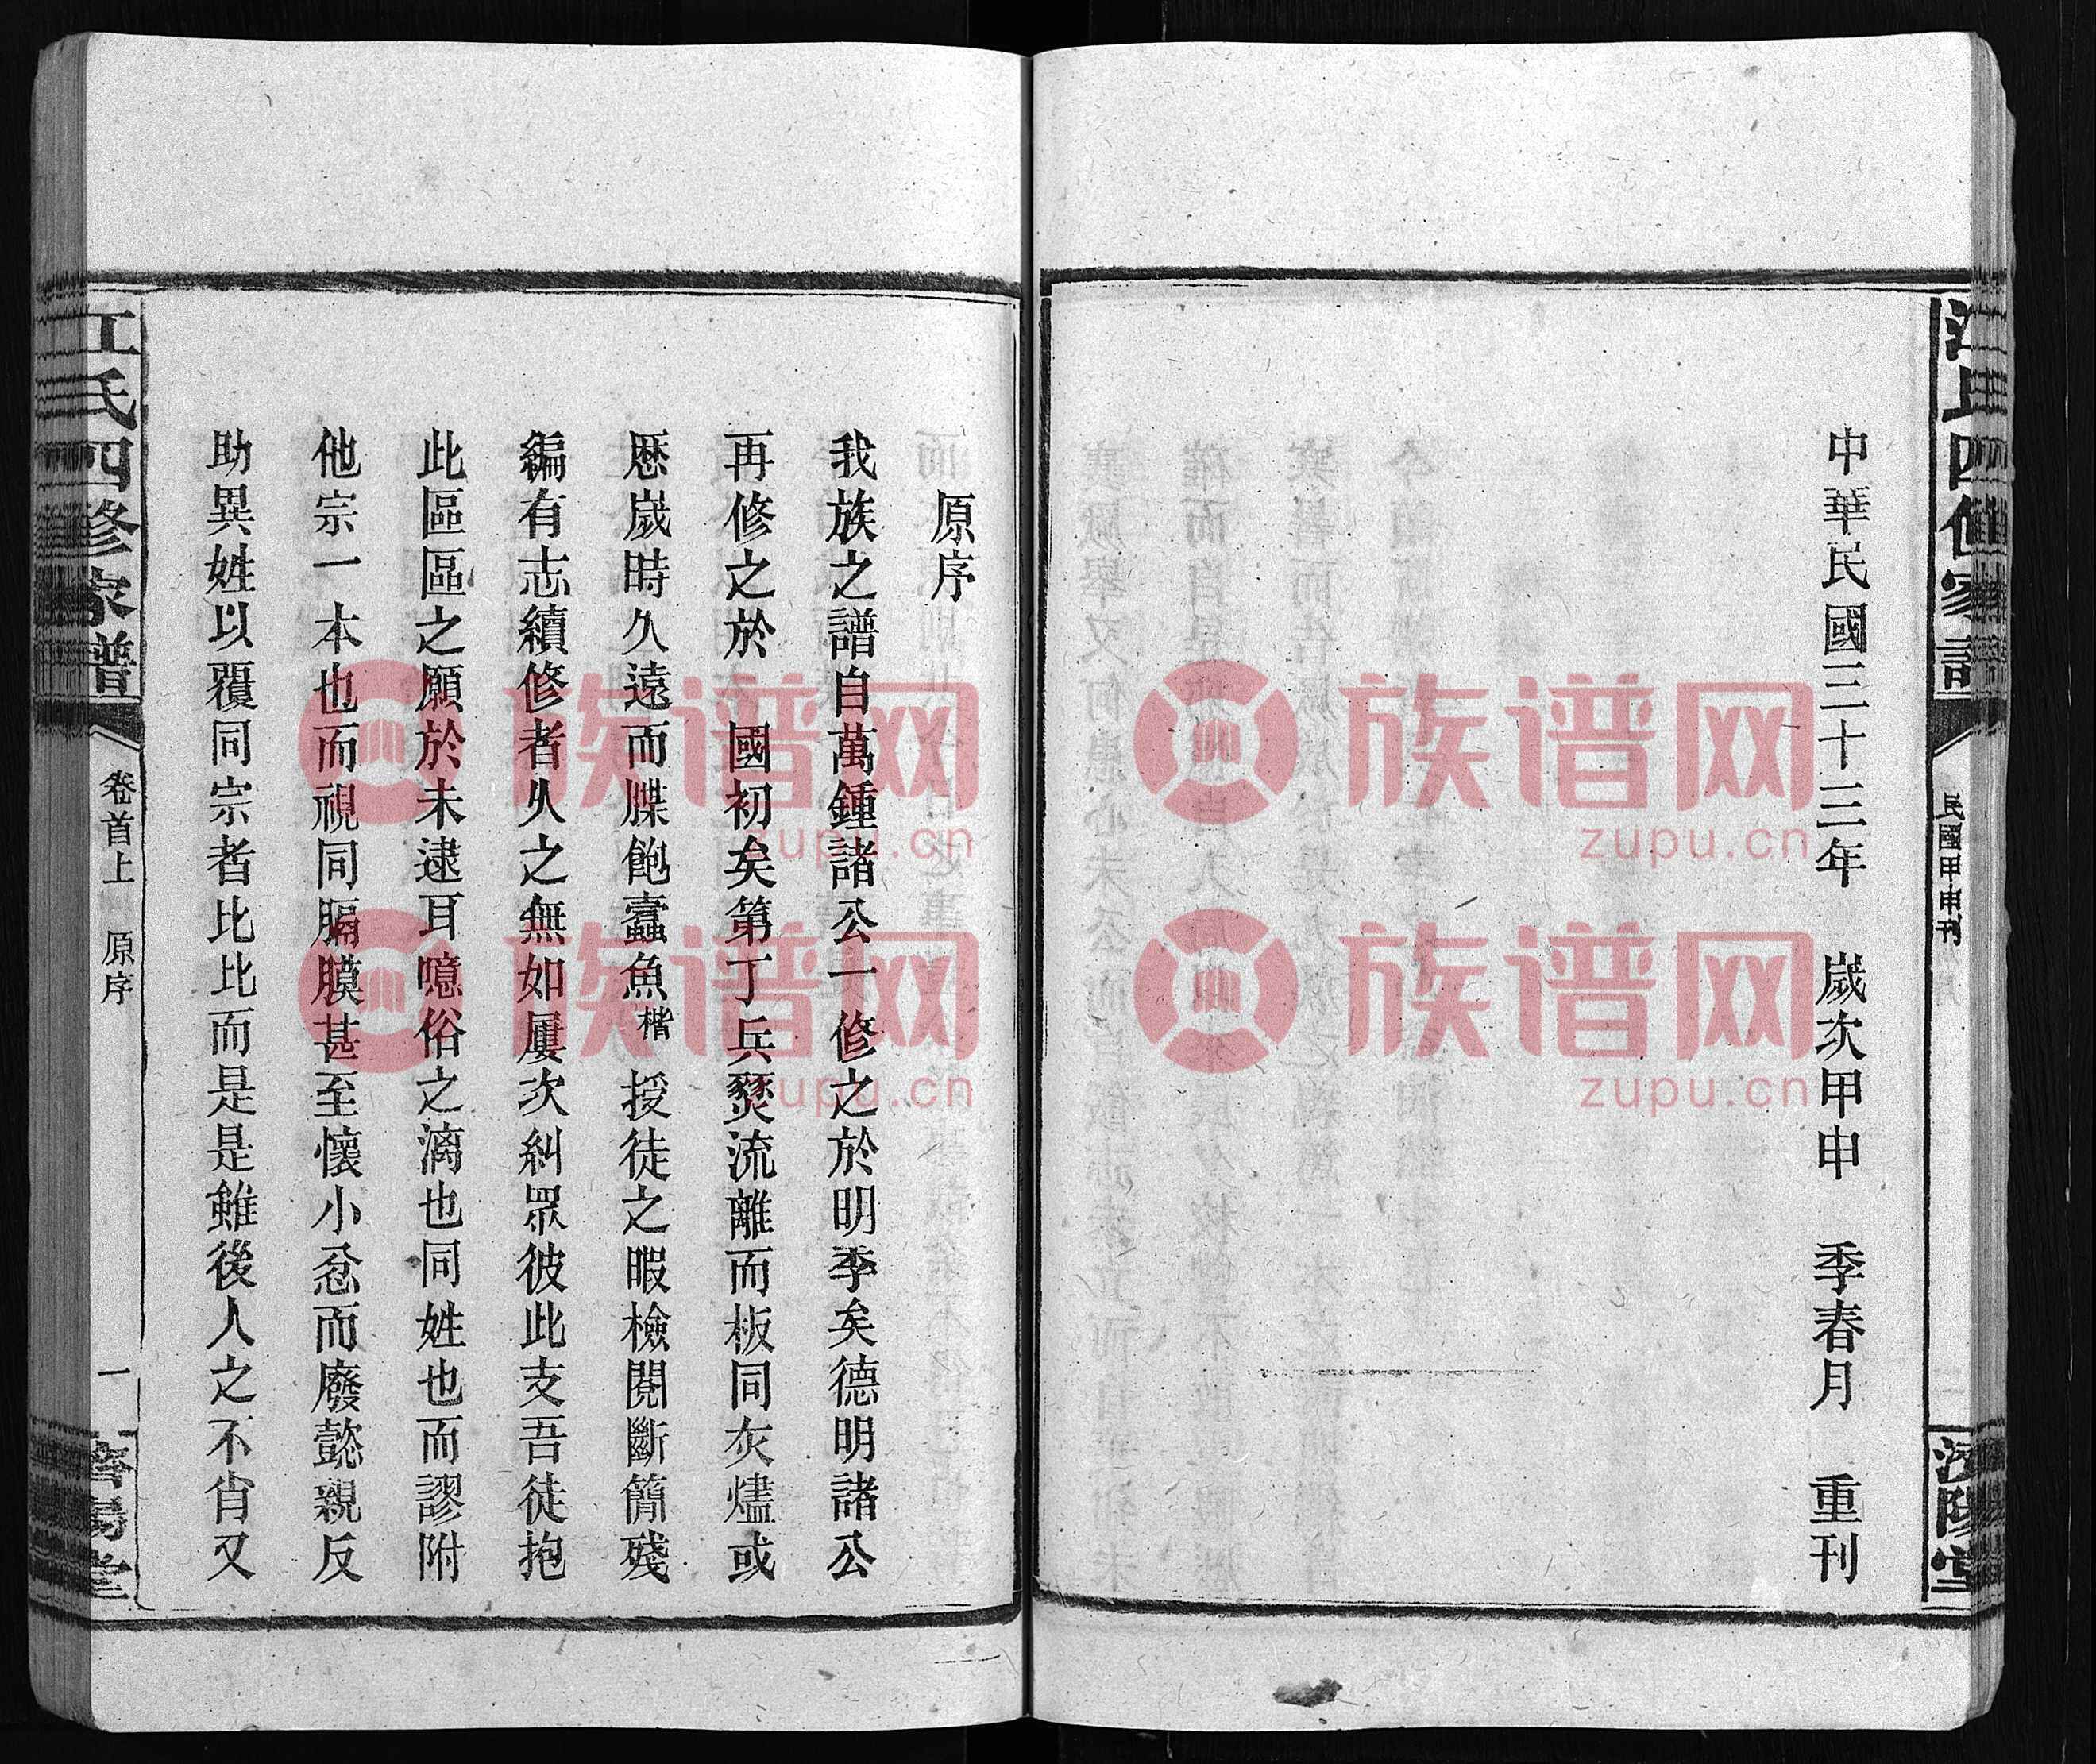 江氏四修家譜
民國甲申刊
濟陽堂
中華民國三十三年 歲次甲申 季春月 重刊
原序
我族之譜自萬鍾諸公一修之於明季矣德明諸公
再修之於 國初矣第丁兵燹流離而板同灰燼或
歷歲時久遠而牒飽蠹魚楷授徒之暇檢閱斷簡殘
編有志續修者久之無如屢次糾眾彼此支吾徒抱
此區區之願於未逮耳噫俗之漓也同姓也而謬附
他宗一本也而視同膈膜甚至懷小忿而廢懿親反
助異姓以覆同宗者比比而是是雖後人之不肖又
江氏四修家譜
卷首上 原序
一
濟陽堂
族谱网
zupu.cn
族谱网
zupu.cn
族谱网
zupu.cn
族谱网
zupu.cn